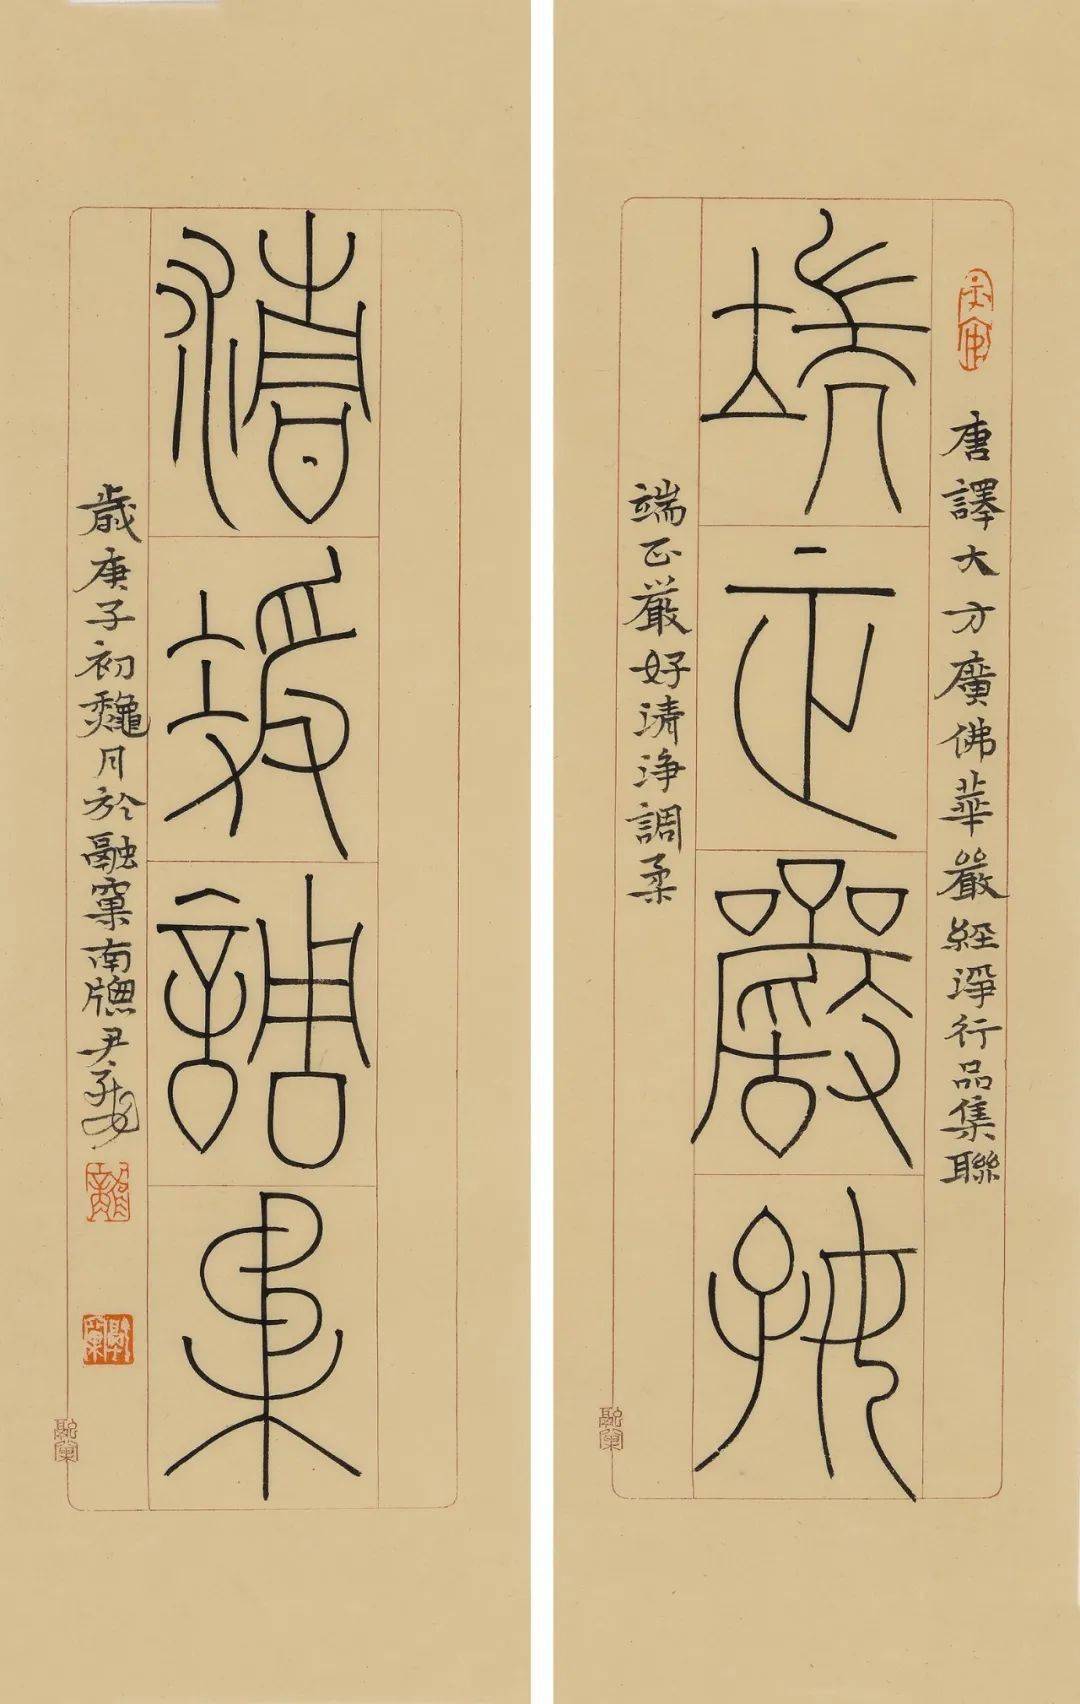 唐譯大方廣佛華厳經淨行品集聯
端正嚴好
端正厳好清淨調柔
融窠
清竫調柔
歲庚子初龝月於融窠南牕尹
融窠